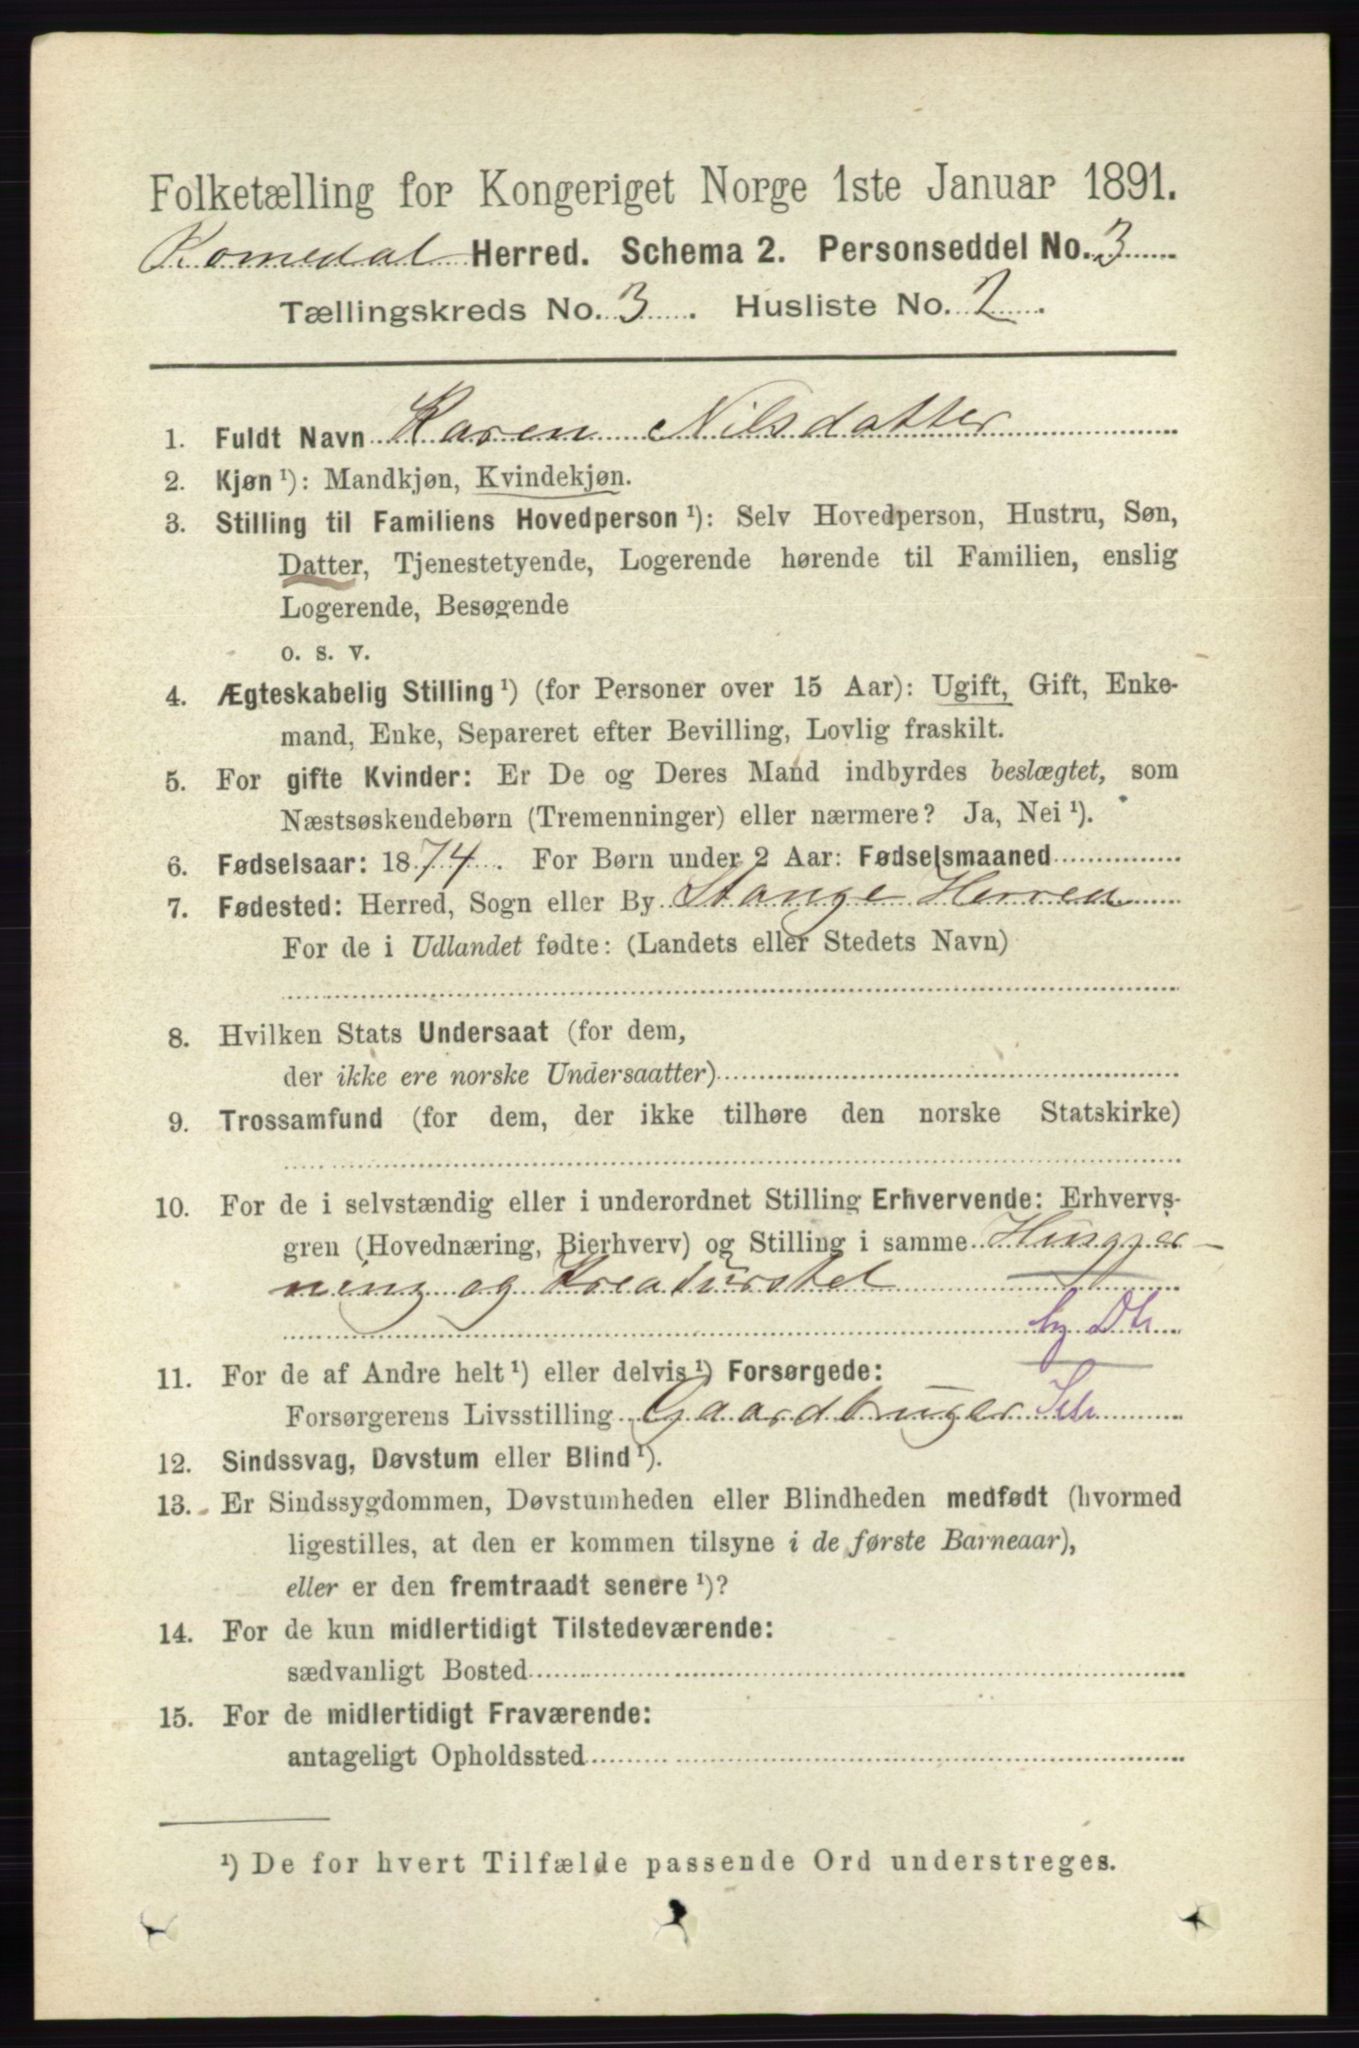 Folketælling for Kongeriget Norge 1ste Januar 1891.
Romedal Herred. Schema 2. Personseddel No. 3
Tællingskreds No. 3. Husliste No. 2.
1. Fuldt Navn Karen Nilsdatter
2. Kjøn ¹): Mandkjøn, Kvindekjøn.
3. Stilling til Familiens Hovedperson ¹): Selv Hovedperson, Hustru, Søn,
Datter, Tjenestetyende, Logerende hørende til Familien, enslig
Logerende, Besøgende
o. s. v.
4. Ægteskabelig Stilling ¹) (for Personer over 15 Aar): Ugift, Gift, Enke-
mand, Enke, Separeret efter Bevilling, Lovlig fraskilt.
5. For gifte Kvinder: Er De og Deres Mand indbyrdes beslægtet, som
Næstsøskendebørn (Tremenninger) eller nærmere? Ja, Nei ¹).
6. Fødselsaar: 1874. For Børn under 2 Aar: Fødselsmaaned
7. Fødested: Herred, Sogn eller By Stange Herred
For de i Udlandet fødte: (Landets eller Stedets Navn)
8. Hvilken Stats Undersaat (for dem,
der ikke ere norske Undersaatter)
9. Trossamfund (for dem, der ikke tilhøre den norske Statskirke)
10. For de i selvstændig eller i underordnet Stilling Erhvervende: Erhvervs-
gren (Hovednæring, Bierhverv) og Stilling i samme Husgjer-
ning og Kreaturstel
hg Dtr
11. For de af Andre helt ¹) eller delvis ¹) Forsørgede:
Forsørgerens Livsstilling Gaardbruger
12. Sindssvag, Døvstum eller Blind ¹).
13. Er Sindssygdommen, Døvstumheden eller Blindheden medfødt (hvormed
ligestilles, at den er kommen tilsyne i de første Barneaar),
eller er den fremtraadt senere ¹)?
14. For de kun midlertidigt Tilstedeværende:
sædvanligt Bosted
15. For de midlertidigt Fraværende:
antageligt Opholdssted
¹) De for hvert Tilfælde passende Ord understreges.